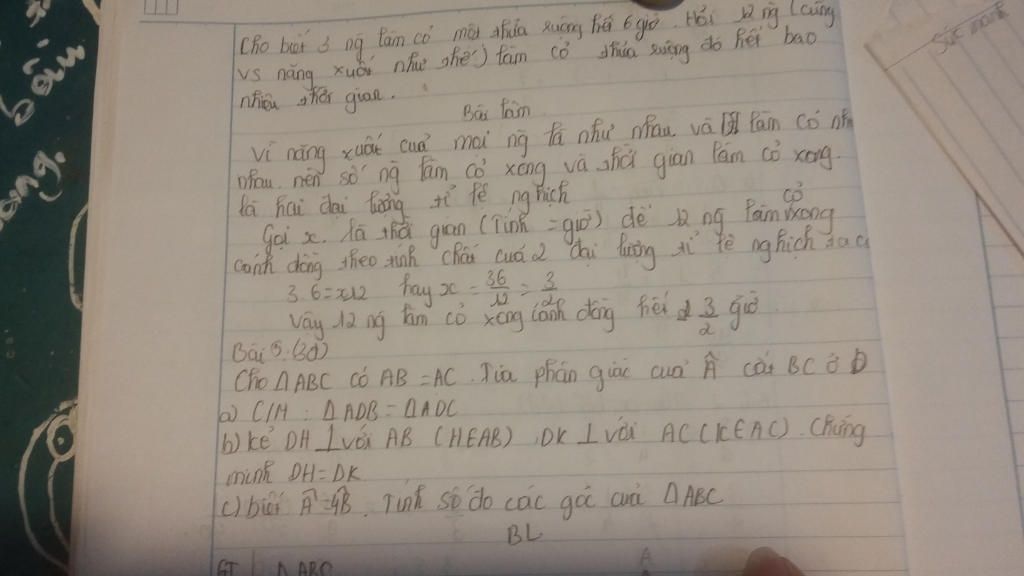 Cho biết 3 ng làm cỏ một thửa ruộng hết 6 giờ. Hỏi 12 ng (cũng
vs năng xuất như thế) làm cỏ thửa ruộng đó hết bao
nhiêu thời gian.
Bài làm
Vì năng xuất của mọi ng là như nhau và làm cỏ như
nhau. nên số ng làm cỏ xong và thời gian làm cỏ xong.
là hai đại lượng tỉ lệ nghịch
Gọi x. là thời gian (Tính = giờ) để 12 ng làm cỏ xong
cánh đồng theo tính chất của 2 đại lượng tỉ lệ nghịch ta có
3.6=x12 hay x = 36/12 = 3/2
Vậy 12 ng làm cỏ xong cánh đồng hết 3/2 giờ
Bài 5.(3đ)
Cho ΔABC có AB = AC. Tia phân giác của Â cắt BC ở D
a) C/M : ΔADB = ΔADC
b) kẻ DH ⊥ với AB (H∈AB), DK ⊥ với AC (K∈AC). Chứng
minh DH = DK
c) biết Â = 4B̂. Tính số đo các góc của ΔABC
BL
GT ΔABC
A
Sức mạnh